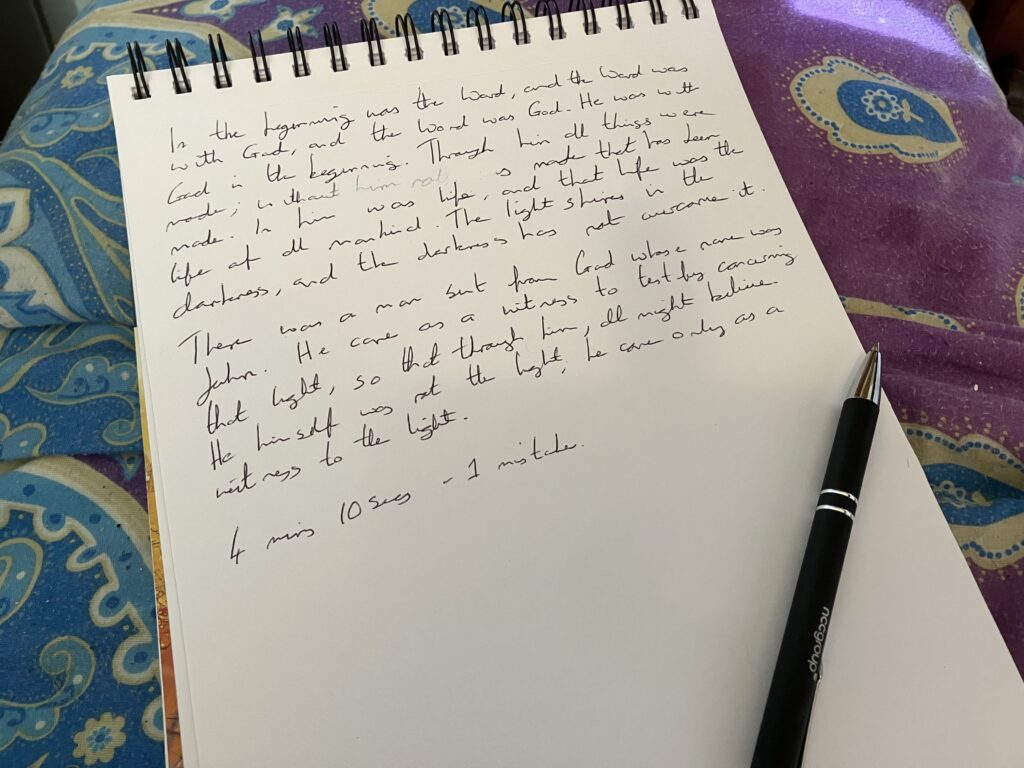 In the beginning was the Word, and the Word was
with God, and the Word was God. He was with
God in the beginning. Through him all things were
made; without him not is made that has been
made. In him was life, and that life was the
life of all mankind. The light shines in the
darkness, and the darkness has not overcome it.
There was a man sent from God whose name was
John. He came as a witness to testify concerning
that light, so that through him, all might believe
He himself was not the light, he came only as a
witness to the light.
4 mins 10 secs - 1 mistake.
nccgroup